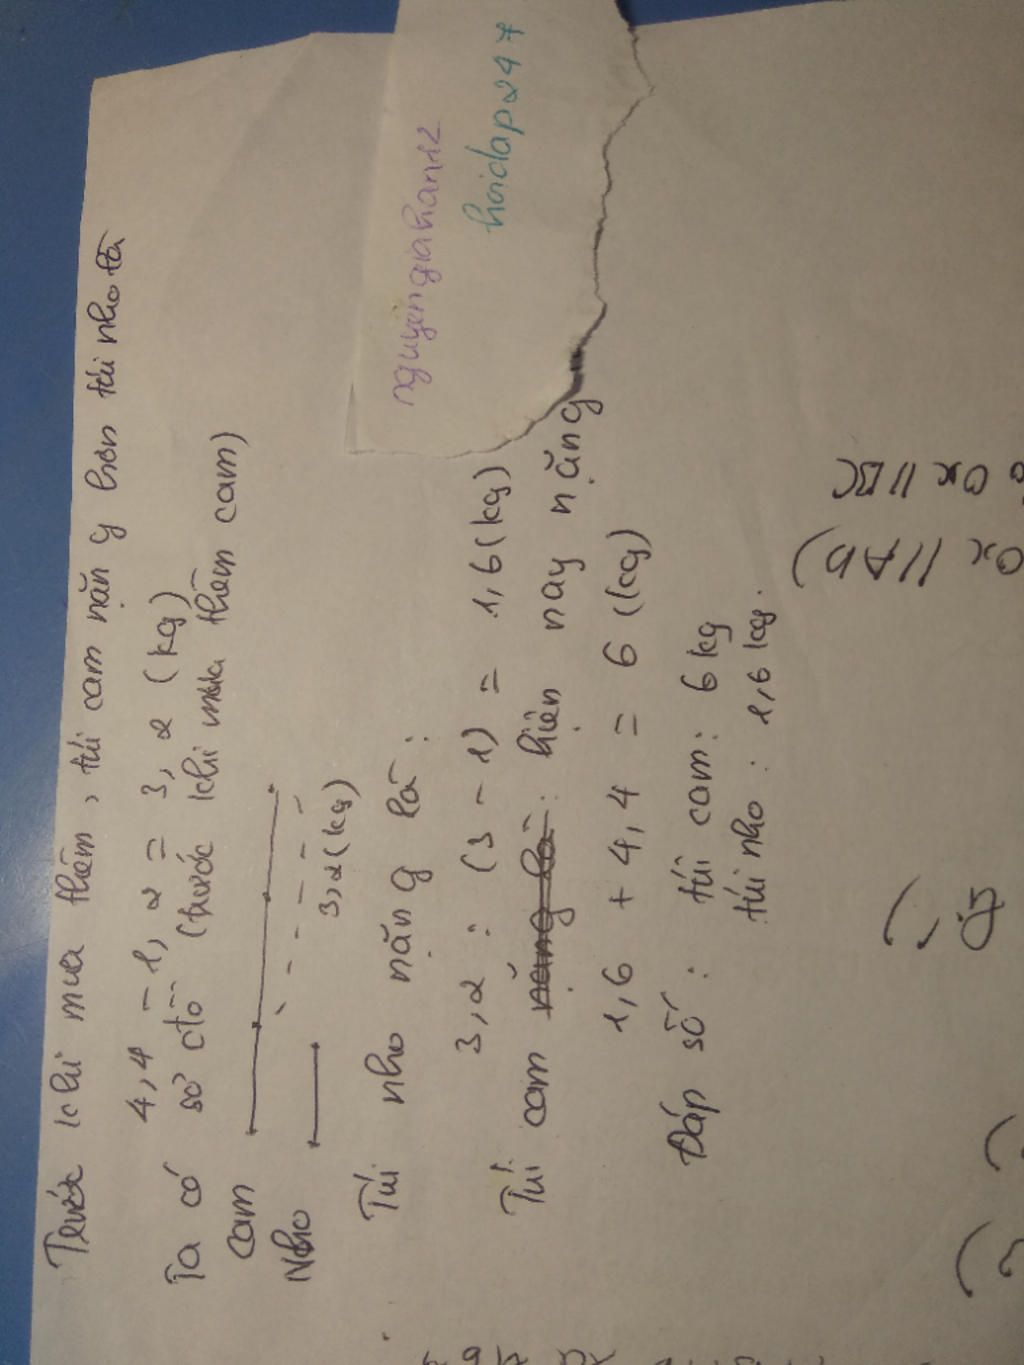 Trước khi mua thêm, túi cam nặng hơn túi nho là
4,4 - 1,2 = 3,2 (kg)
Ta có sơ đồ (trước khi mua thêm cam)
Cam
Nho
3,2 (kg)
Túi nho nặng là:
3,2 : (3 - 1) = 1,6 (kg)
Túi cam nặng là: hiện nay nặng
1,6 + 4,4 = 6 (kg)
Đáp số: túi cam: 6 kg
túi nho: 1,6 kg.
nguyengiahan12
hoidap247
Ox // BC
Ox // Ab)